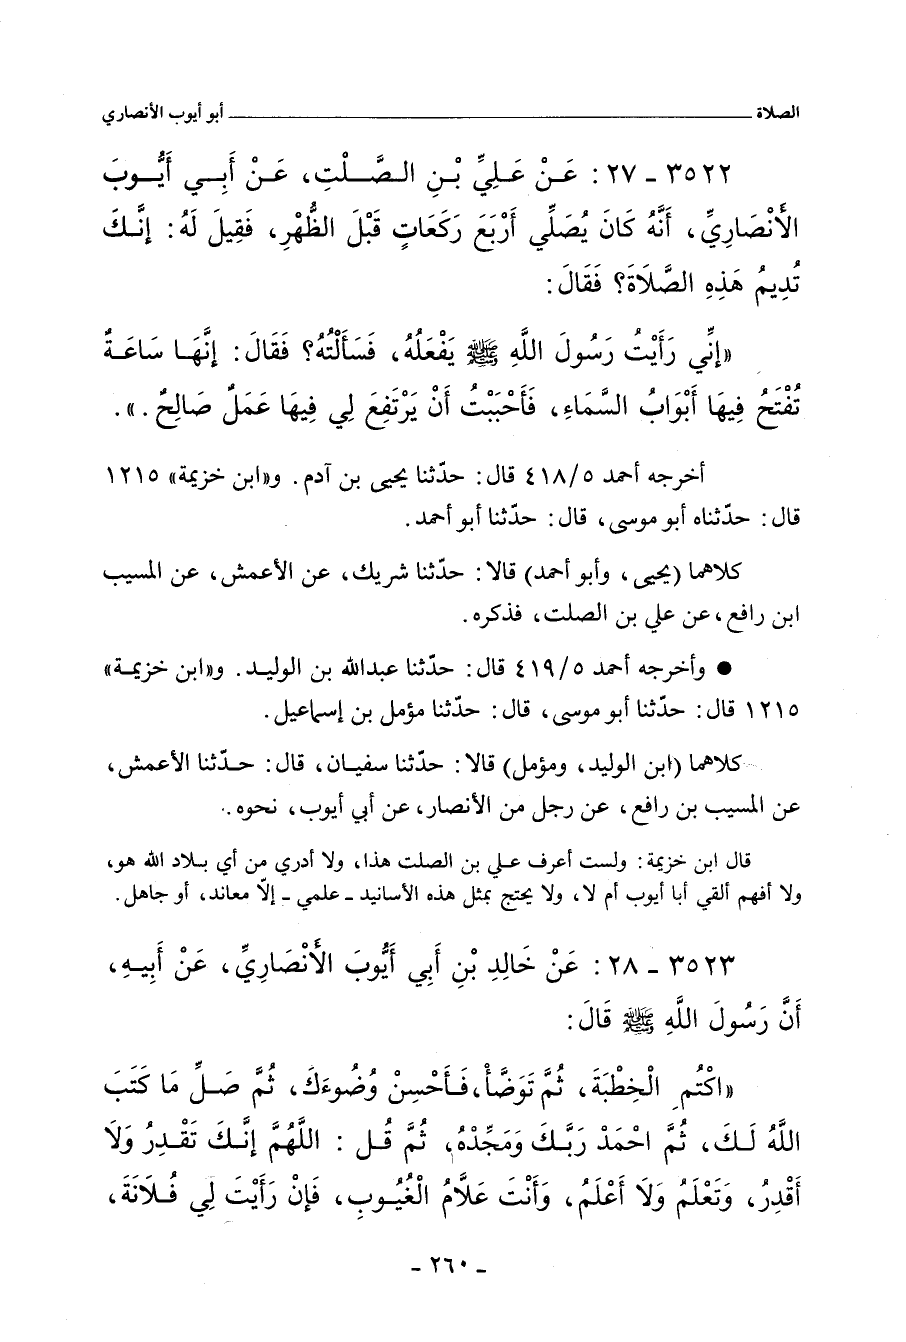 الصلاة ــــــــــ أبو أيوب الأنصاري
٣٥٢٢ ـ ٢٧ : عَنْ عَلِيِّ بْنِ الصَّلْتِ، عَنْ أَبِي أَيُّوبَ
الأَنْصَارِيِّ، أَنَّهُ كَانَ يُصَلِّي أَرْبَعَ رَكَعَاتٍ قَبْلَ الظُّهْرِ، فَقِيلَ لَهُ: إِنَّكَ
تُدِيمُ هَذِهِ الصَّلَاةَ؟ فَقَالَ:
«إِنِّي رَأَيْتُ رَسُولَ اللَّهِ ﷺ يَفْعَلُهُ، فَسَأَلْتُهُ؟ فَقَالَ: إِنَّهَا سَاعَةٌ
تُفْتَحُ فِيهَا أَبْوَابُ السَّمَاءِ، فَأَحْبَبْتُ أَنْ يَرْتَفِعَ لِي فِيهَا عَمَلٌ صَالِحٌ.».
أخرجه أحمد ٤١٨/٥ قال: حدّثنا يحيى بن آدم. و«ابن خزيمة» ١٢١٥
قال: حدّثناه أبو موسى، قال: حدّثنا أبو أحمد.
كلاهما (يحيى، وأبو أحمد) قالا: حدّثنا شريك، عن الأعمش، عن المسيب
ابن رافع، عن علي بن الصلت، فذكره.
● وأخرجه أحمد ٤١٩/٥ قال: حدّثنا عبدالله بن الوليد. و«ابن خزيمة»
١٢١٥ قال: حدّثنا أبو موسى، قال: حدّثنا مؤمل بن إسماعيل.
كلاهما (ابن الوليد، ومؤمل) قالا: حدّثنا سفيان، قال: حدّثنا الأعمش،
عن المسيب بن رافع، عن رجل من الأنصار، عن أبي أيوب، نحوه.
قال ابن خزيمة: ولست أعرف علي بن الصلت هذا، ولا أدري من أي بلاد الله هو،
ولا أفهم ألقي أبا أيوب أم لا، ولا يحتج بمثل هذه الأسانيد ـ علمي ـ إلّا معاند، أو جاهل.
٣٥٢٣ ـ ٢٨ : عَنْ خَالِدِ بْنِ أَبِي أَيُّوبَ الأَنْصَارِيِّ، عَنْ أَبِيهِ،
أَنَّ رَسُولَ اللَّهِ ﷺ قَالَ:
«اكْتُمِ الْخِطْبَةَ، ثُمَّ تَوَضَّأْ، فَأَحْسِنْ وُضُوءَكَ، ثُمَّ صَلِّ مَا كَتَبَ
اللَّهُ لَكَ، ثُمَّ احْمَدْ رَبَّكَ وَمَجِّدْهُ، ثُمَّ قُل : اللَّهُمَّ إِنَّكَ تَقْدِرُ وَلَا
أَقْدِرُ، وَتَعْلَمُ وَلَا أَعْلَمُ، وَأَنْتَ عَلَّامُ الْغُيُوبِ، فَإِنْ رَأَيْتَ لِي فُلَانَةَ،
- ٢٦٠ -